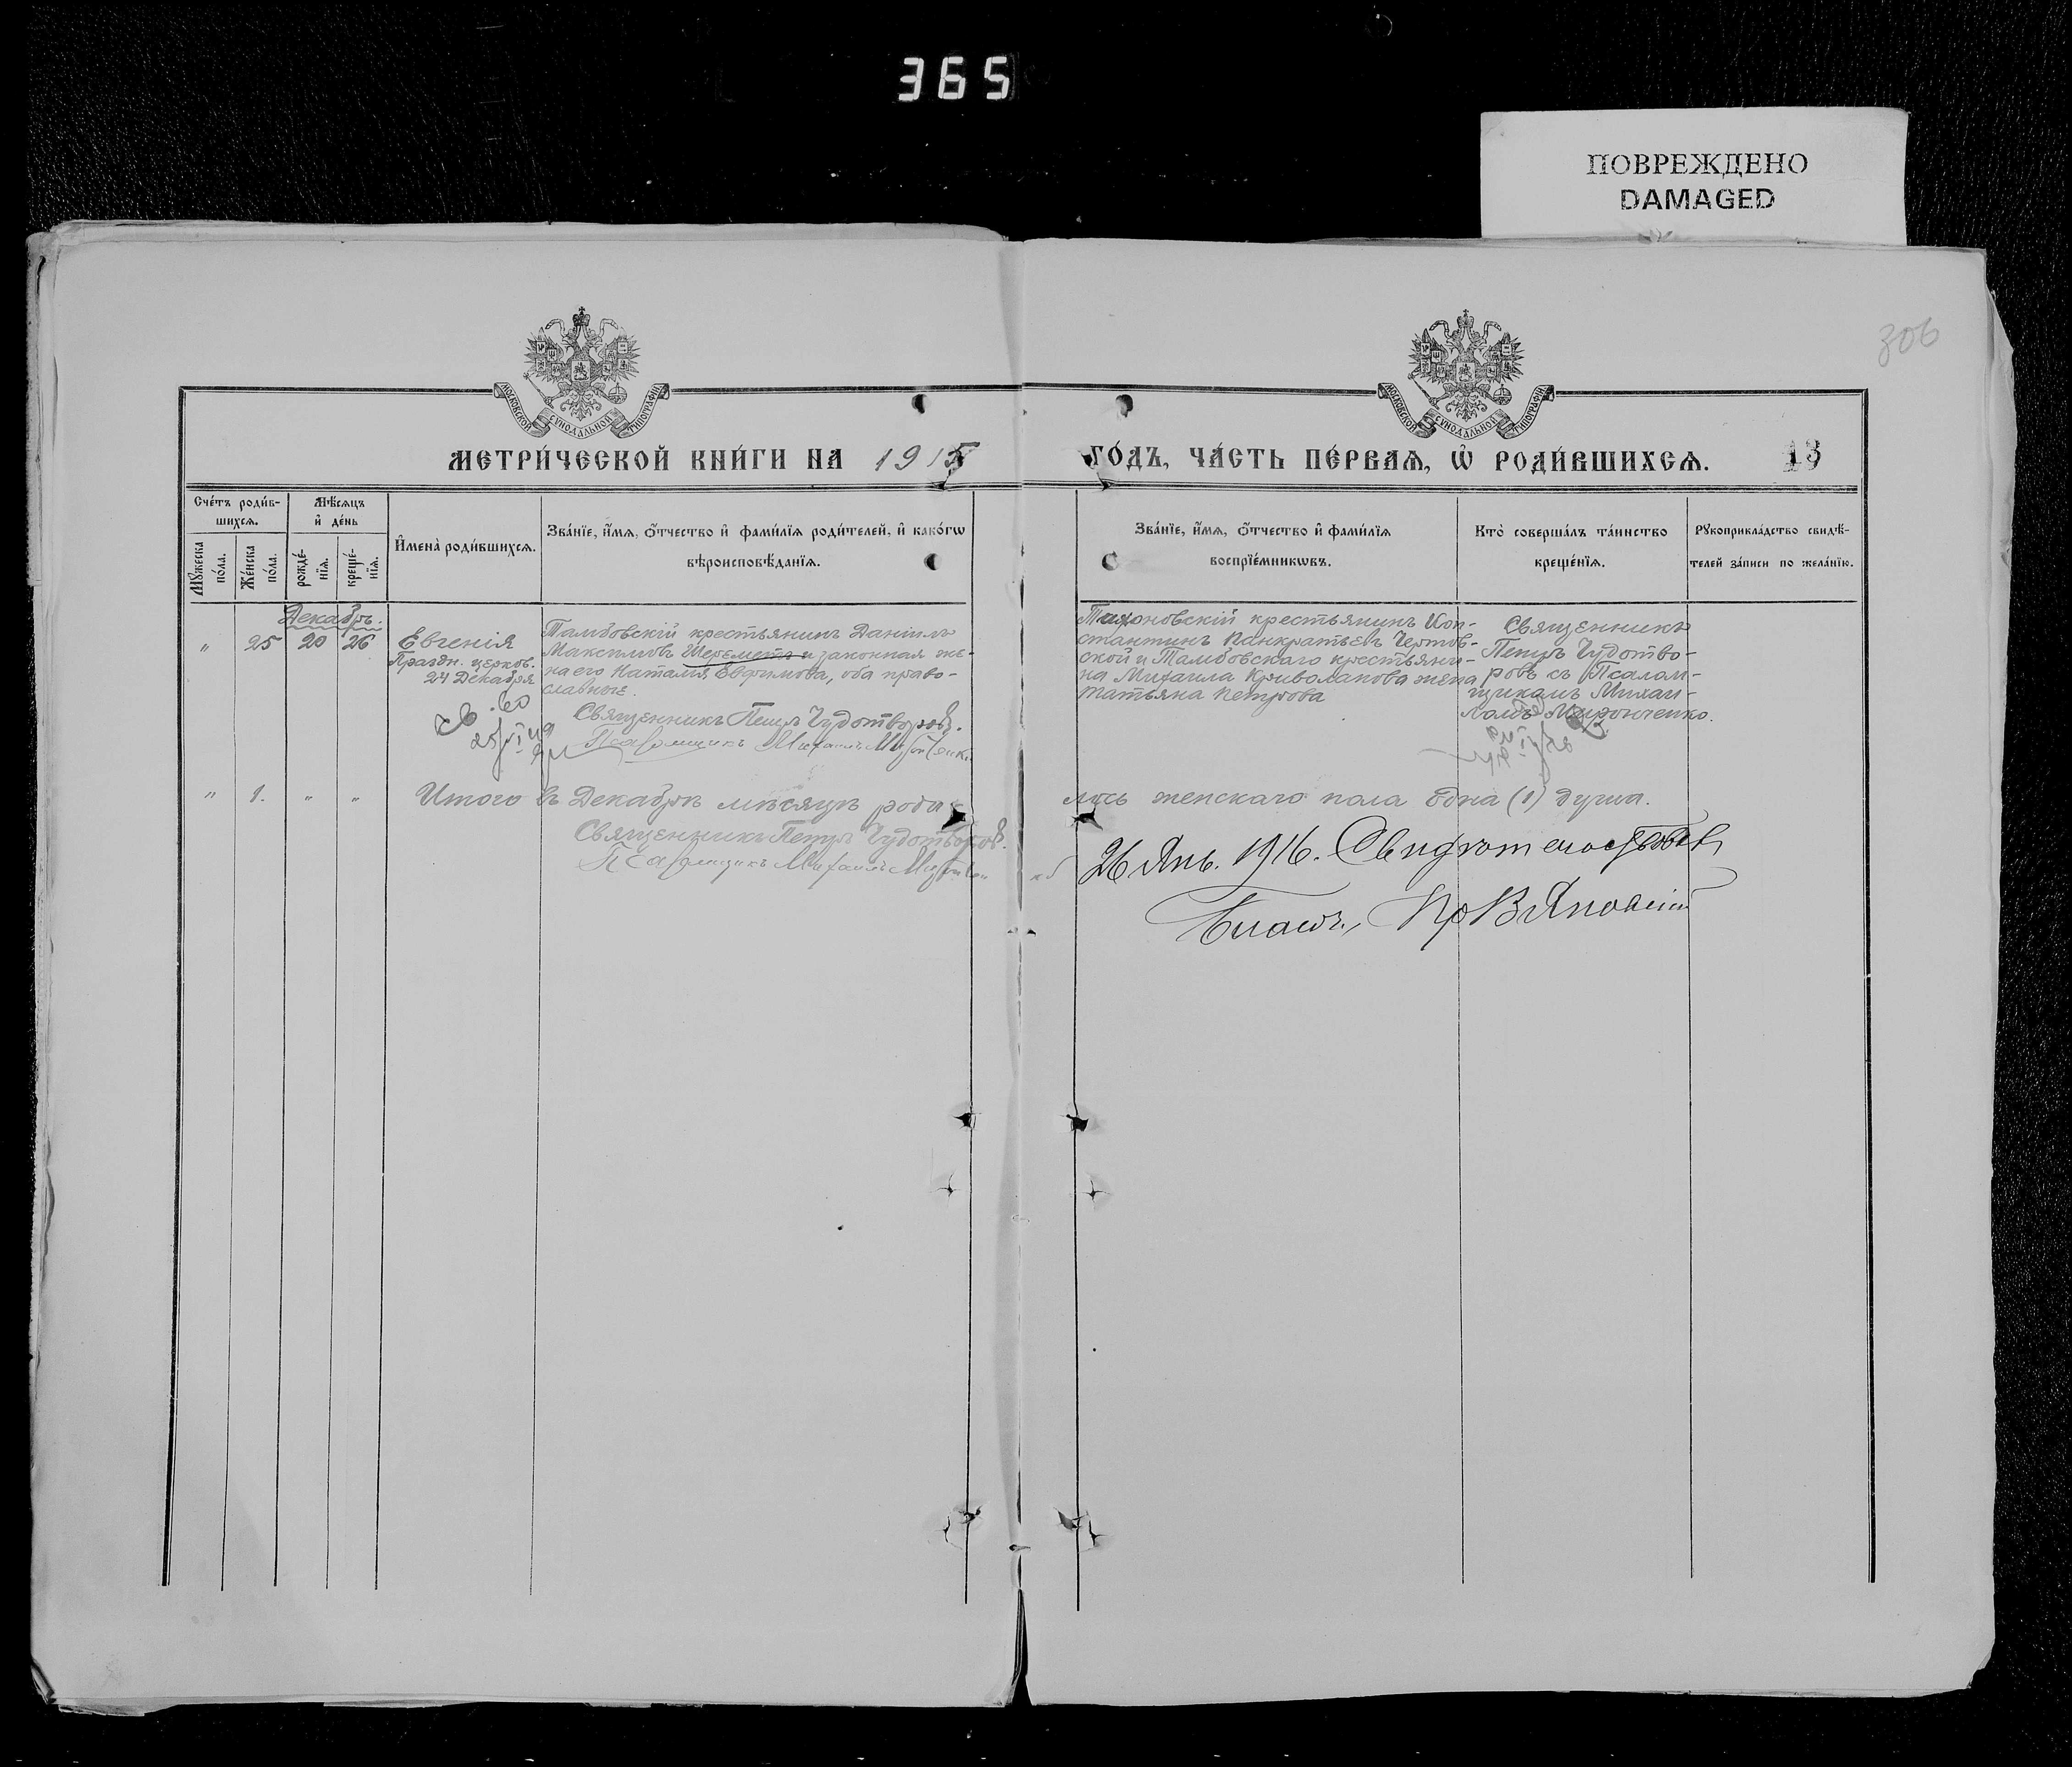 365
ПОВРЕЖДЕНО
DAMAGED
306
МОСКОВСКОЙ СѴНОДАЛЬНОЙ ТИПОГРАФІИ
МОСКОВСКОЙ СѴНОДАЛЬНОЙ ТИПОГРАФІИ
МЕТРИ́ЧЕСКОЙ КНИ́ГИ НА 1915 ГО́ДЪ, ЧА́СТЬ ПЕ́РВАѦ, Ѡ РОДИ́ВШИХСѦ. 13
Сче́тъ роди́в-
шихсѧ.
Мꙋ́жеска по́ла.
Же́нска по́ла.
Мѣ́сѧцъ
и҆ де́нь
рожде́-
нїѧ.
креще́-
нїѧ.
И҆мена̀ роди́вшихсѧ.
Зва́нїе, и҆́мѧ, ѻ҆́тчество и҆ фами́лїѧ роди́телей, и҆ како́гѡ
вѣроисповѣ́данїѧ.
Зва́нїе, и҆́мѧ, ѻ҆́тчество и҆ фами́лїѧ
воспрїе́мникѡвъ.
Кто̀ соверша́лъ та́инство
креще́нїѧ.
Рꙋкоприкла́дство свидѣ́-
телей за́писи по жела́нїю.
Декабрь.
" 25 20 26
Евгенія
Праздн. церков.
24 Декабря
Тамбовскій крестьянинъ Даніилъ
Максимовъ Шереметъ и законная же-
на его Наталія Евфимова, оба право-
славные.
Священникъ Петръ Чудотворовъ.
Псаломщикъ Михаилъ
крестьянинъ Кон-
стантинъ Панкратьевъ Чертов-
ской и Тамбовскаго крестьяни-
на Михаила Криволапова жена
Татьяна Петрова
Священникъ
Петръ Чудотво-
ровъ съ Псалом-
щикомъ Михаи-
ломъ Миронченко.
" 1. " " Итого въ Декабрѣ мѣсяцѣ роди лось женскаго пола одна (1) душа.
Священникъ Петръ Чудотворовъ.
Псаломщикъ Михаилъ
26 Янв. 1916.